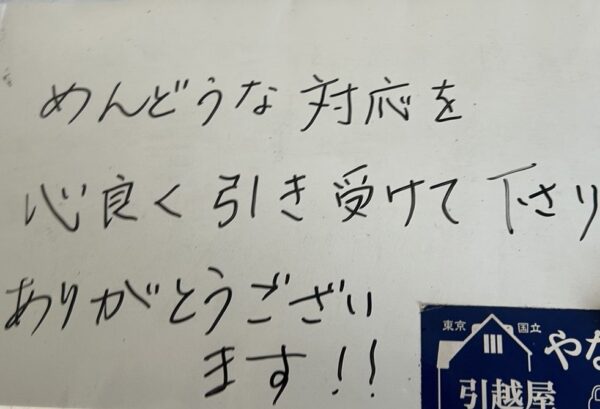 めんどうな対応を
心良く引き受けて下さり
ありがとうござい
ます!!
東京 国立
やな
引越屋